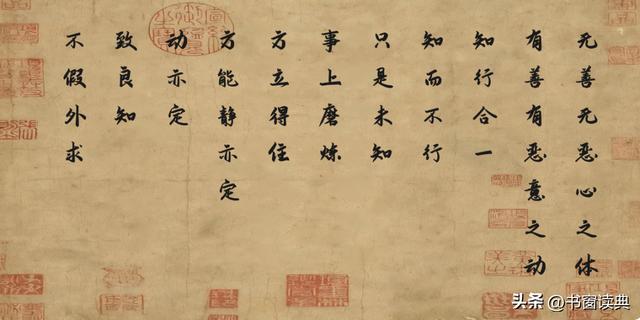 无善无恶心之体
有善有恶意之动
知行合一
知而不行
只是未知
事上磨炼
方立得住
方能静亦定
动亦定
致良知
不假外求
头条 @书窗读典